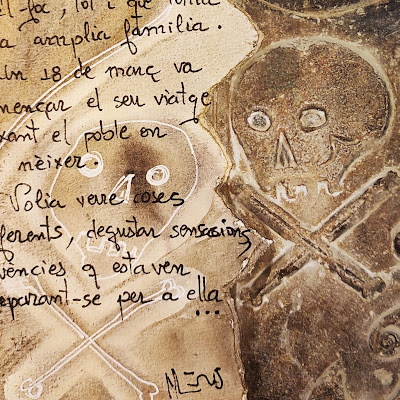 el foc, tot i que tenia
a amplia família.
un 18 de març va
mençar el seu viatge
xant el poble on
nèixer.
Volia veure coses
ferents, degustar sensacions
vències q estaven
eparant-se per a ella
...